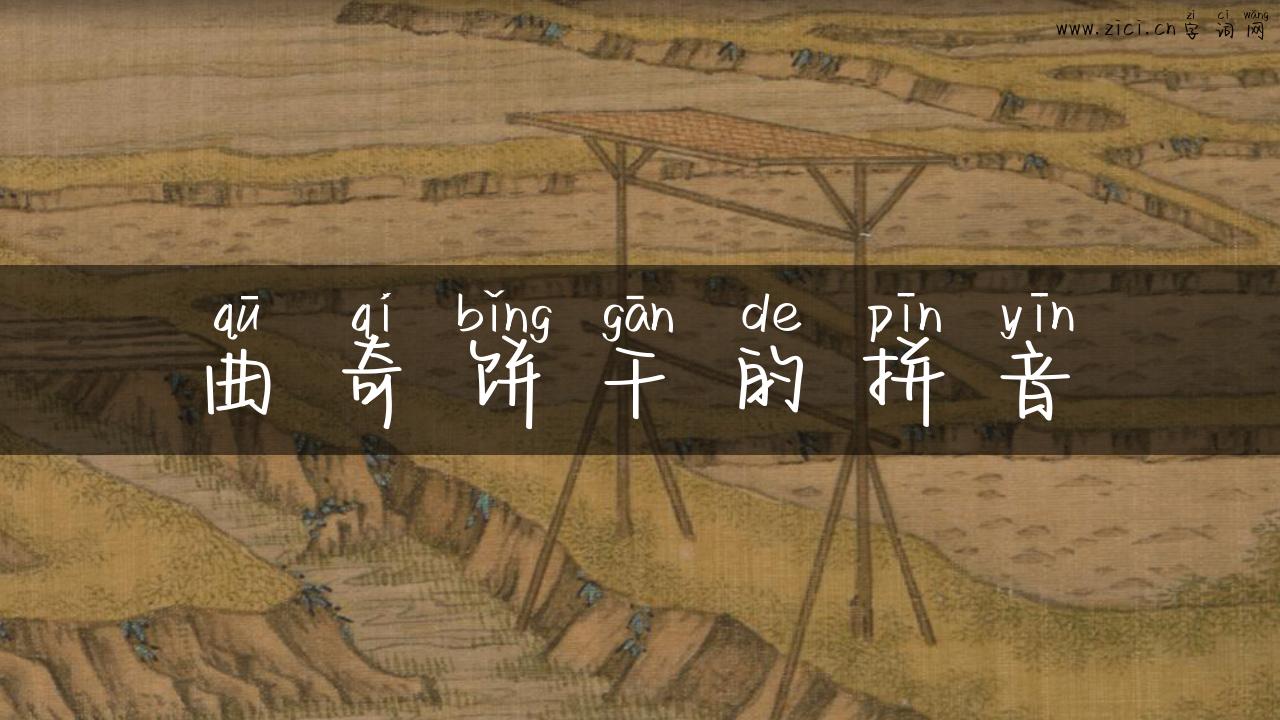 zì cí wǎng
www.zici.cn 字词网
qū qí bǐng gān de pīn yīn
曲奇饼干的拼音